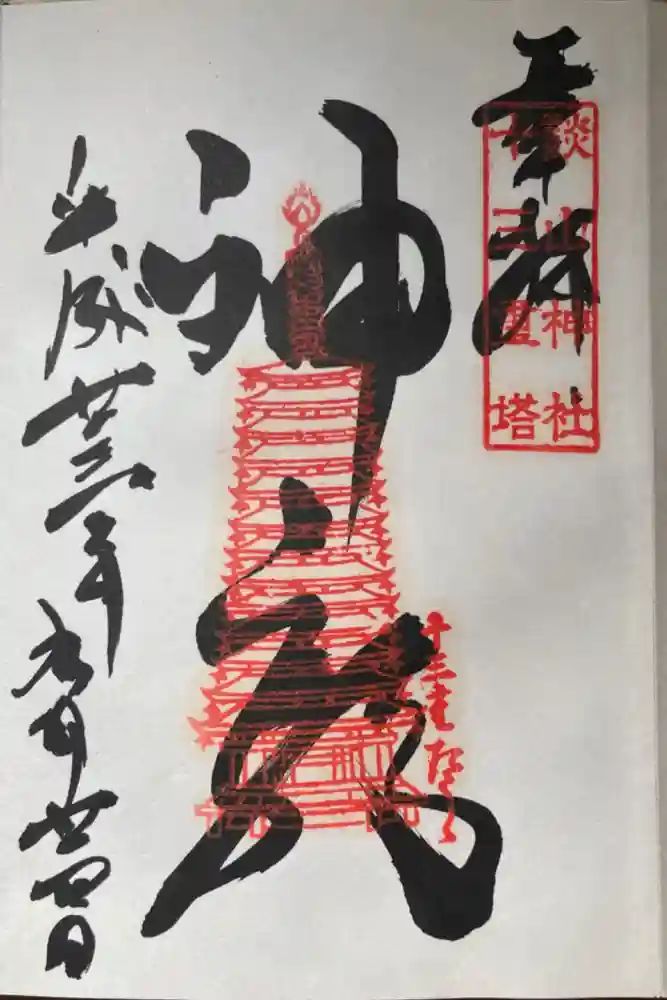 奉拝
談山神社
十三重塔
神廟
十三重塔
平成廿三年九月廿四日